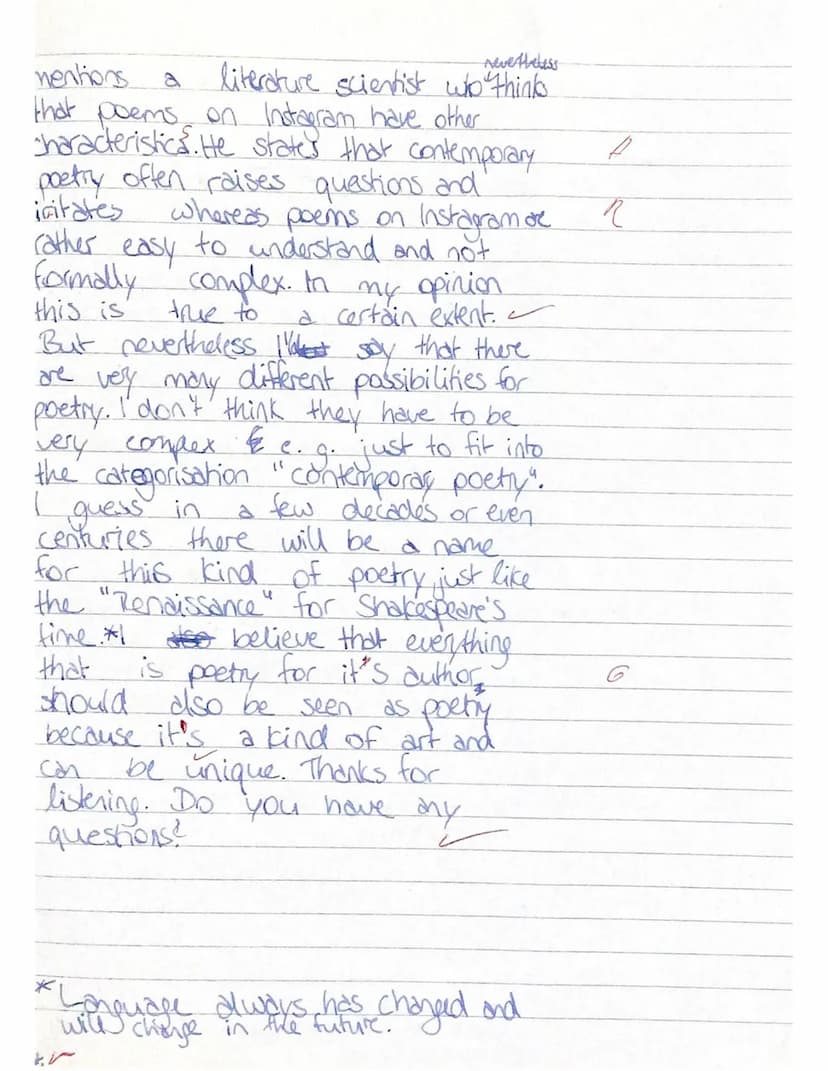 nevertheless
mentions a literature scientist who thinks
that poems on Instagram have other
characteristics. He states that contemporary
poetry often raises questions and
irritates whereas poems on Instagram are
rather easy to understand and not
formally complex. In my opinion
this is true to a certain extent.
But nevertheless I'd say that there
are very many different possibilities for
poetry. I don't think they have to be
very complex e. g. just to fit into
the categorisation "contemporary poetry".
I guess in a few decades or even
centuries there will be a name
for this kind of poetry, just like
the "Renaissance" for Shakespeare's
time.*I believe that everything
that is poetry for it's author,
G
should also be seen as poetry
because it's a kind of art and
can be unique. Thanks for
listening. Do you have any
questions?
* Language always has changed and
will change in the future.